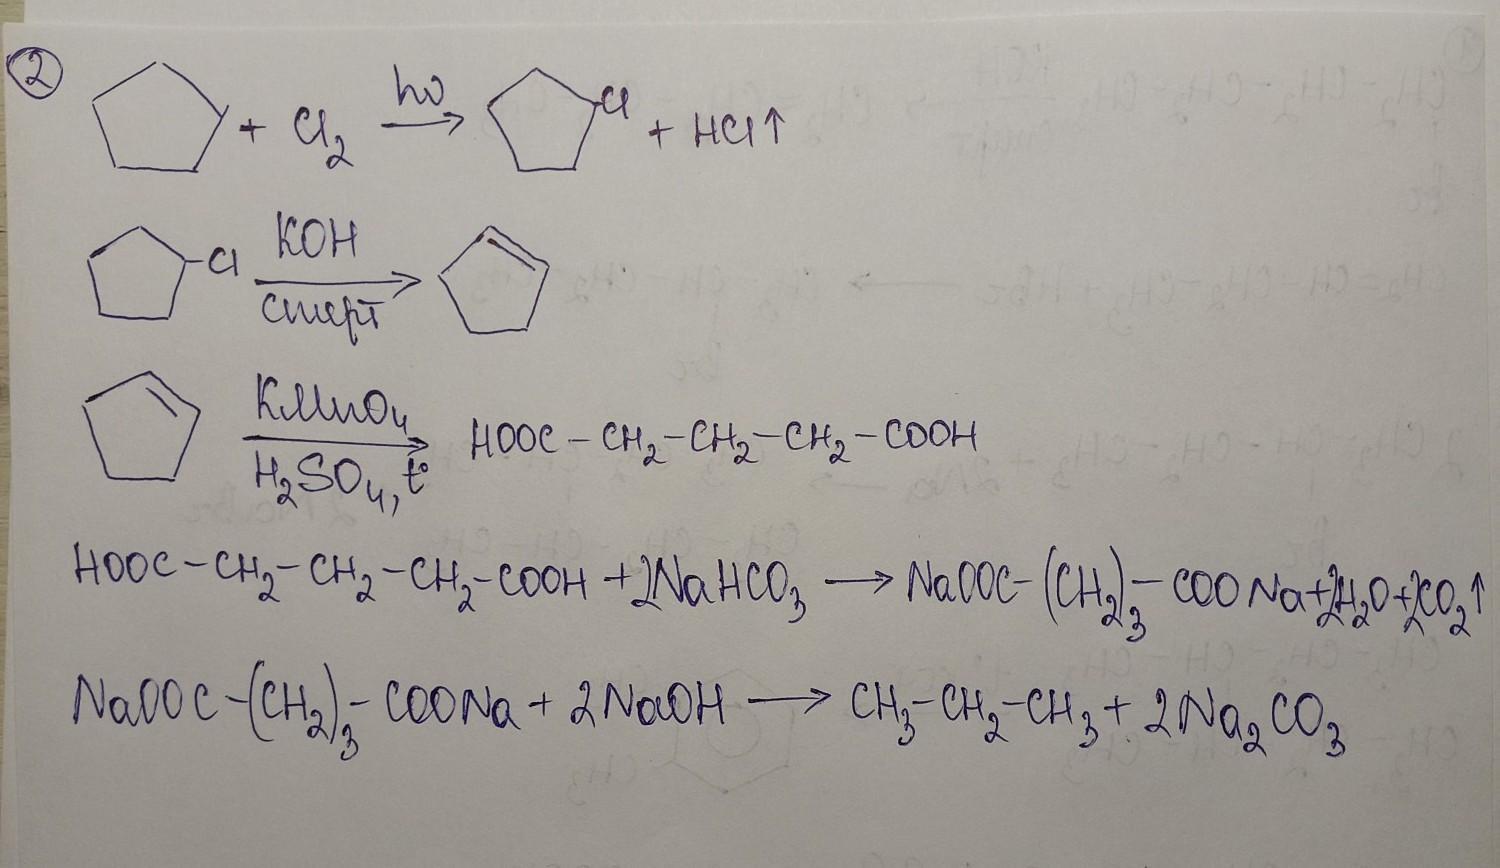 2
+ Cl2 hν → Cl + HCl↑
Cl KOH спирт →
KMnO4 H2SO4, t° → HOOC - CH2 - CH2 - CH2 - COOH
HOOC - CH2 - CH2 - CH2 - COOH + 2NaHCO3 → NaOOC - (CH2)3 - COONa + 2H2O + 2CO2↑
NaOOC - (CH2)3 - COONa + 2NaOH → CH3 - CH2 - CH3 + 2Na2CO3